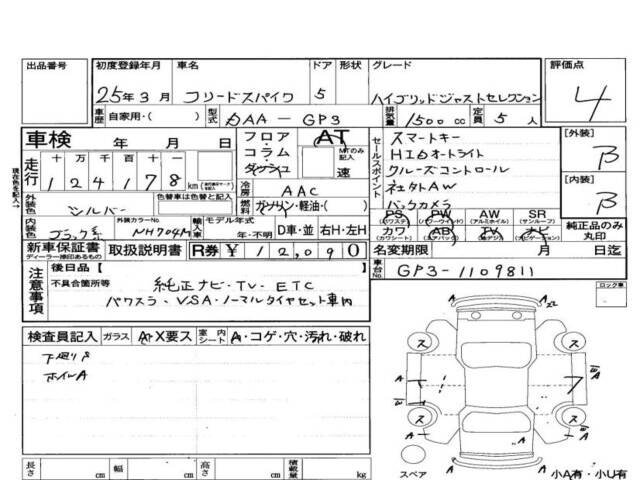 出品番号 初度登録年月 車名 ドア 形状 グレード 評価点
25年3月 フリードスパイク 5 ハイブリッドジャストセレクション 4
車歴 自家用・( ) 型式 DAA-GP3 排気量 1500cc 定員 5人
車検 年 月 日 フロア・コラム・ダッシュ AT MTのみ記入 速
セールスポイント
スマートキー
HIDオートライト
クルーズコントロール
社外AW
バックカメラ
[外装] B
[内装] B
現在色を記入→
走行 十 万 千 百 十 一
124178 km
冷房 AAC
外装色 シルバー 色替車は色替と記入 燃料 ガソリン・軽油・( )
内装色 ブラック系 外装カラーNo. NH704M 輸入車 モデル年式 年・不明 D車・並 右H・左H
PS (パワステ) PW (パワーウインド) AW (アルミホイル) SR (サンルーフ)
カワ (カワシート) AB (エアバック) TV (アナ・デジ) ナビ (ナビゲーション) 純正品のみ丸印
新車保証書 ディーラー捺印あるもの 取扱説明書 R券 ¥12,090
名変期限 月 日迄
車台No. GP3-1109811
注意事項 後日品( )
不具合箇所等 純正ナビ・TV・ETC
パワスラ・VSA・ノーマルタイヤセット車内
ロック車
検査員記入 ガラス A・X要ス 室内シート A・コゲ・穴・汚れ・破れ
下廻りP
ホイルA
A A X2
ス ス
A A W A
ス ス
W A
A A
スペア 小A有・小U有
長さ cm 幅 cm 高さ cm 積載量 kg